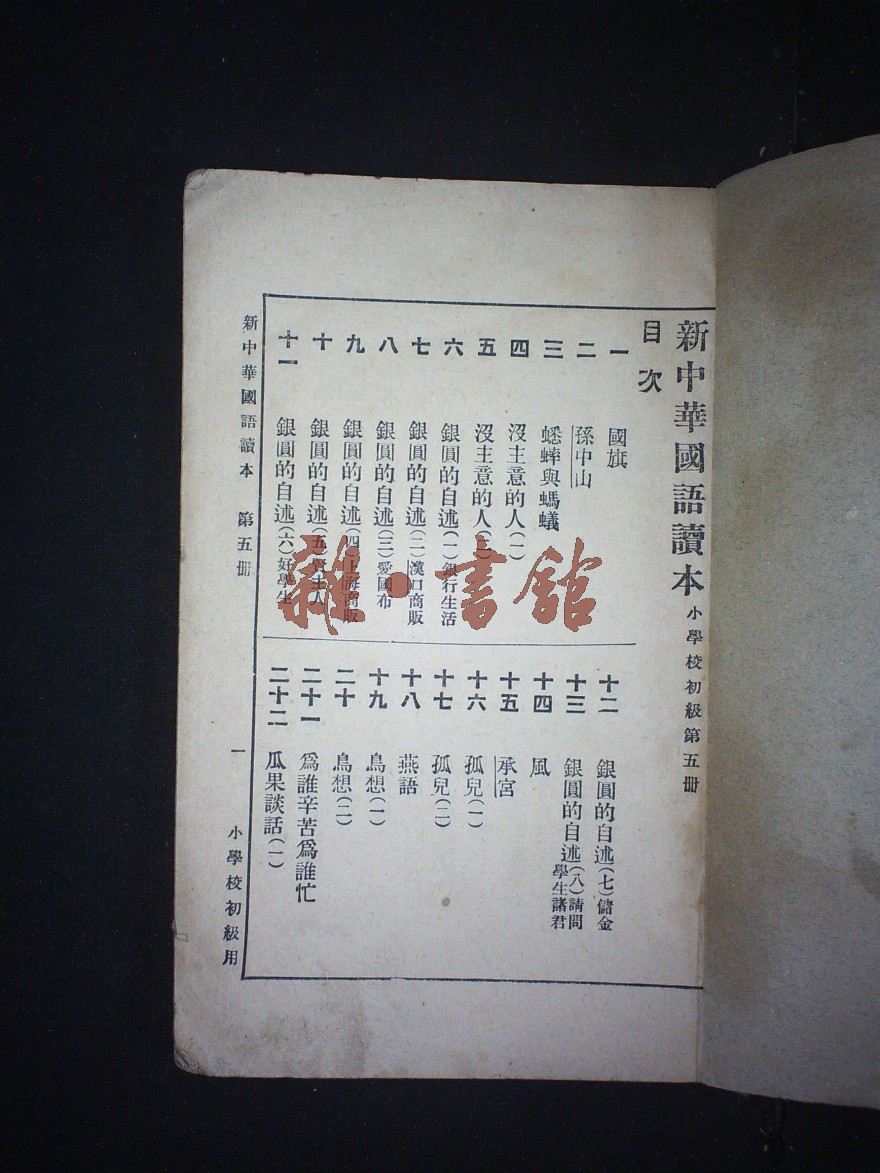 新中華國語讀本 小學校初級第五冊
目次
一 國旗
二 孫中山
三 蟋蟀與螞蟻
四 沒主意的人(一)
五 沒主意的人(二)
六 銀圓的自述(一)銀行生活
七 銀圓的自述(二)漢口商販
八 銀圓的自述(三)愛國布
九 銀圓的自述(四)上海商販
十 銀圓的自述(五)主人
十一 銀圓的自述(六)好學生
十二 銀圓的自述(七)儲金
十三 銀圓的自述(八)請問學生諸君
十四 風
十五 承宮
十六 孤兒(一)
十七 孤兒(二)
十八 燕語
十九 鳥想(一)
二十 鳥想(二)
二十一 爲誰辛苦爲誰忙
二十二 瓜果談話(一)
新中華國語讀本 第五冊 一 小學校初級用
雜·書館